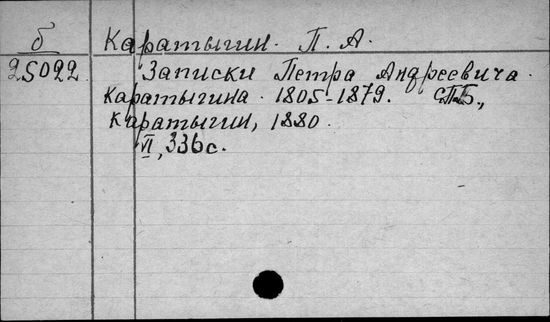 б Каратыгин. П. А.
25022. Записки Петра Андреевича
Каратыгина. 1805-1879. СПБ.,
Каратыгин, 1880.
VI, 336с.